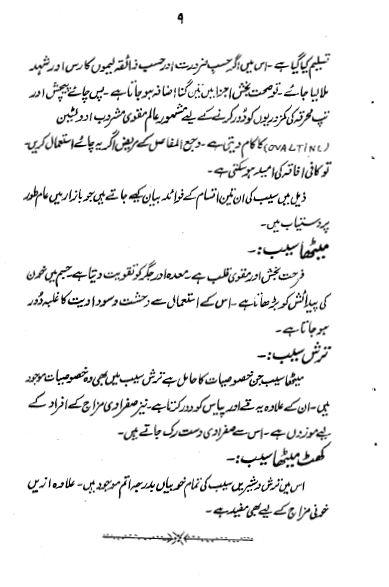 ۹
تسلیم کیا گیا ہے۔ اس میں اگر حسبِ ضرورت اور حسبِ ذائقہ لیموں کا رس اور شہد
ملا لیا جائے۔ تو صحت بخش اجزا میں تین گنا اضافہ ہو جاتا ہے۔ پس چائے پیچش اور
تپ محرقہ کی کمزوریوں کو دُور کرنے کے لیے مشہور عالم مقوی مشروب اوولٹین
(OVALTINE) کا کام دیتی ہے۔ وجع المفاصل کے مریض اگر یہ چائے استعمال کریں۔
تو کافی افاقہ کی امید ہو سکتی ہے۔
ذیل میں سیب کی ان تین اقسام کے فوائد بیان کیے جاتے ہیں جو بازار میں عام طور
پر دستیاب ہیں۔
میٹھا سیب:۔
فرحت بخش اور مقوی قلب ہے۔ معدہ اور جگر کو تقویت دیتا ہے۔ جسم میں خون
کی پیدائش کو بڑھاتا ہے۔ اس کے استعمال سے وحشت و سوداویت کا غلبہ دُور
ہو جاتا ہے۔
ترش سیب:۔
میٹھا سیب جن خصوصیات کا حامل ہے ترش سیب میں بھی وہ خصوصیات موجود
ہیں۔ ان کے علاوہ یہ قے اور پیاس کو دور کرتا ہے۔ نیز صفراوی مزاج کے افراد کے
لیے موزوں ہے۔ اس سے صفراوی دست رک جاتے ہیں۔
کھٹ میٹھا سیب:۔
اس میں ترش و شیریں سیب کی تمام خوبیاں بدرجہ اتم موجود ہیں۔ علاوہ ازیں
خونی مزاج کے لیے بھی مفید ہے۔